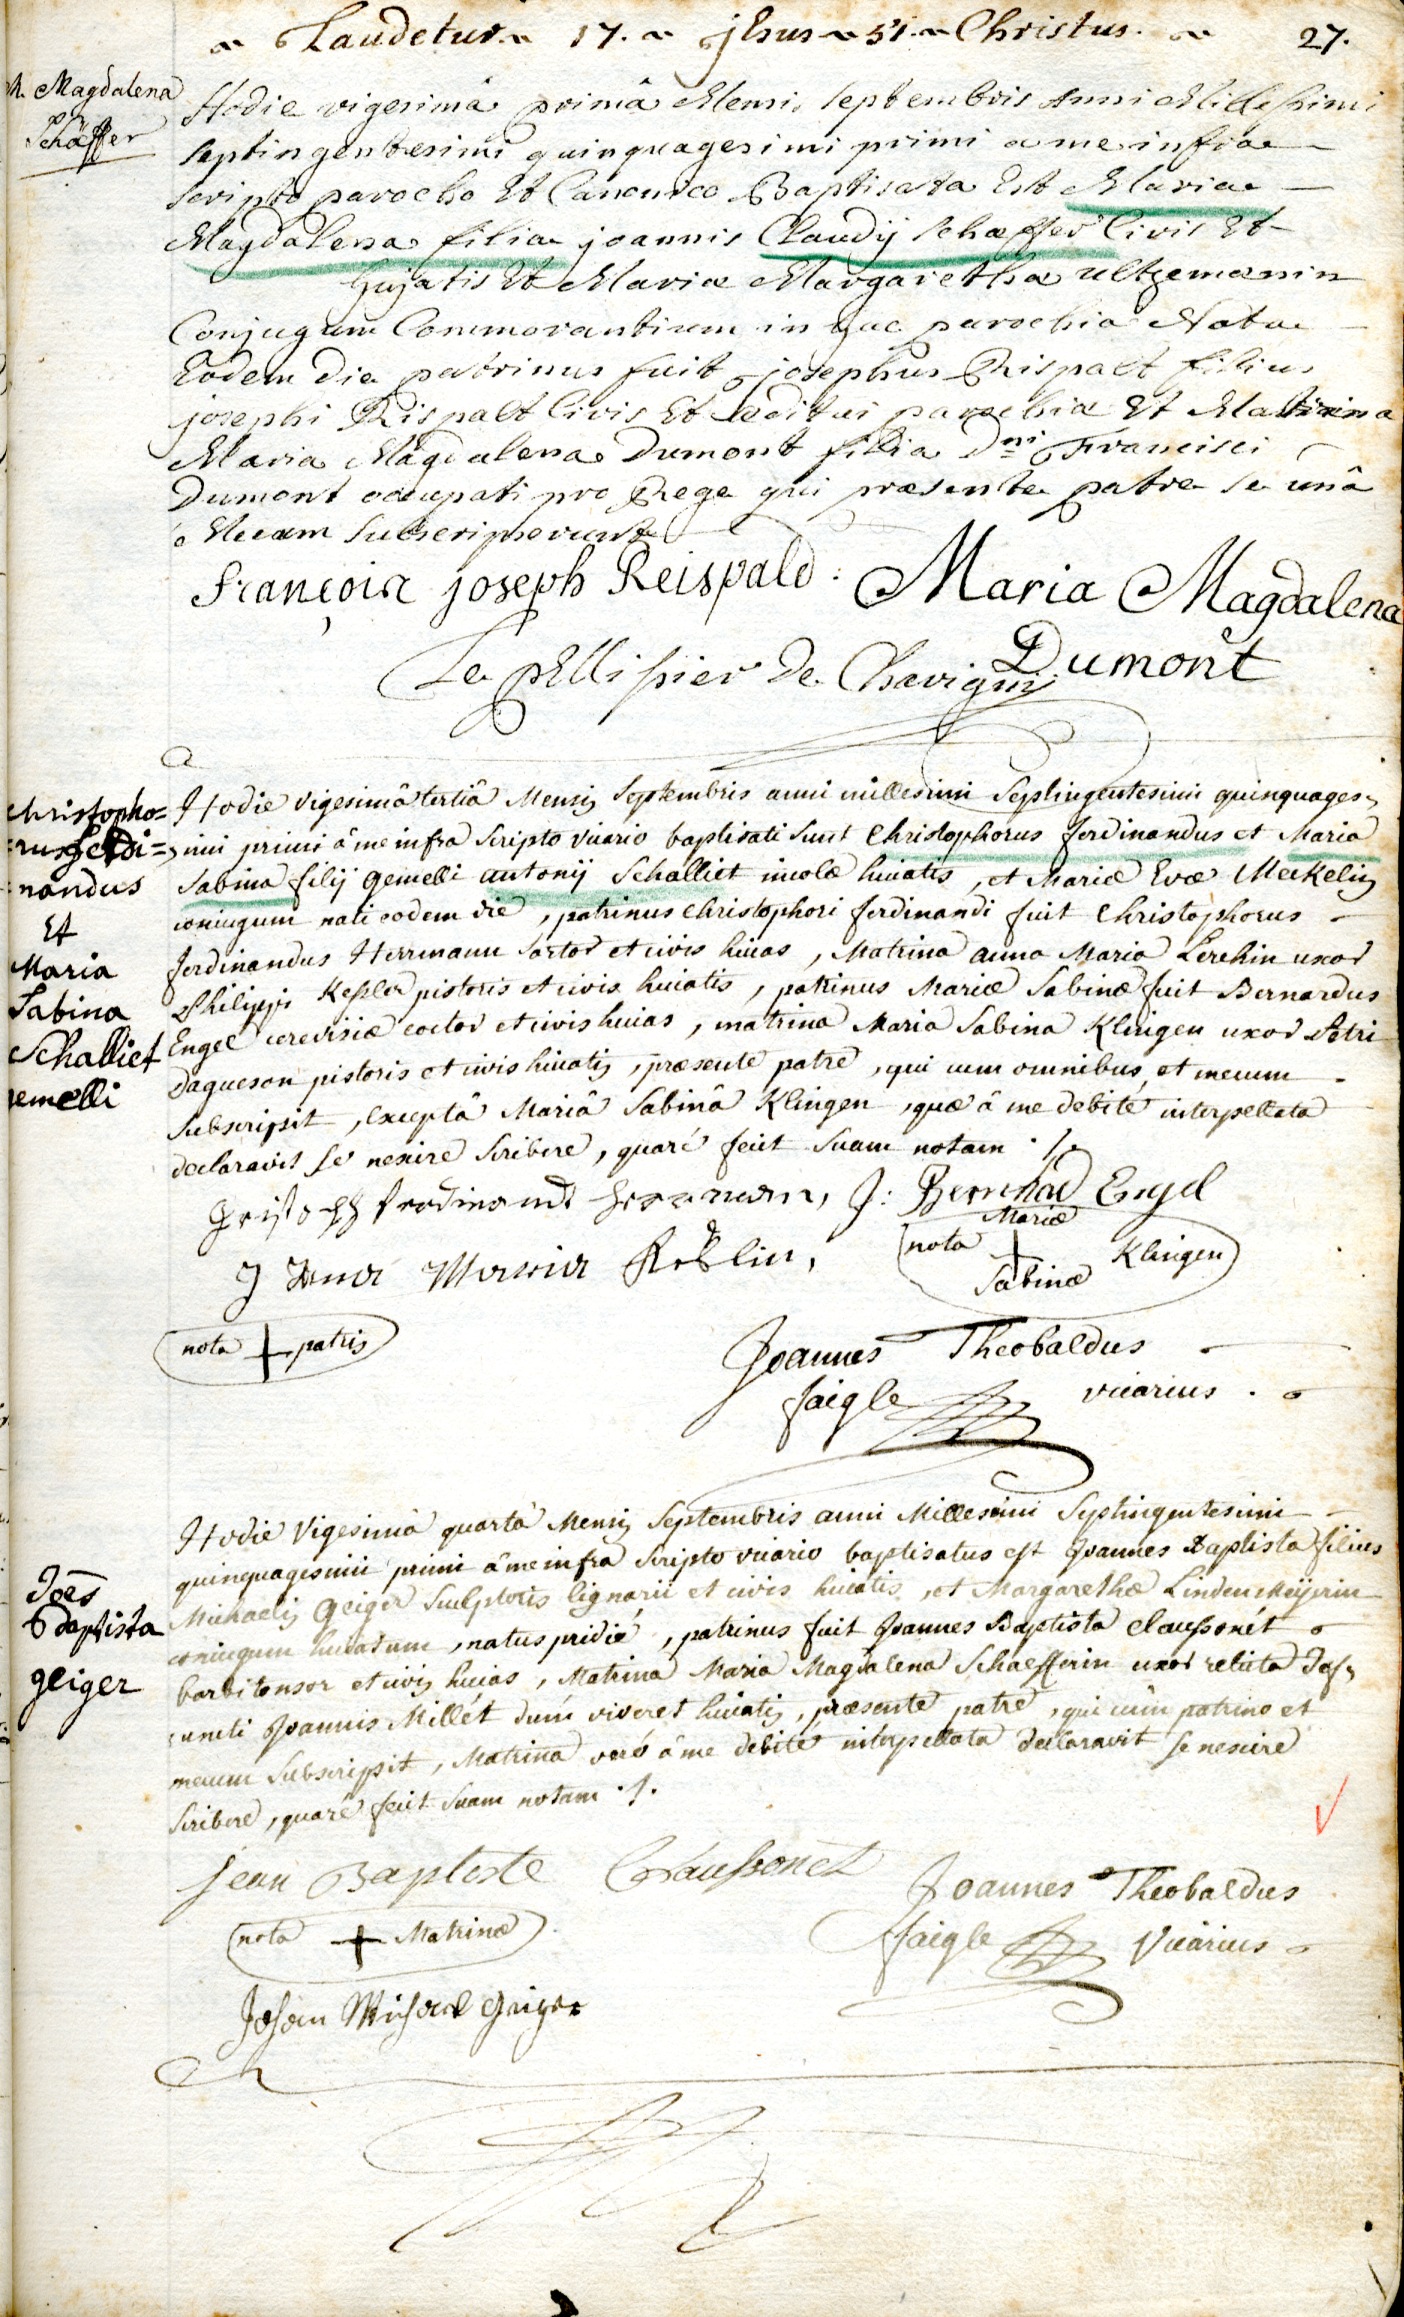 Laudetur. 17. jEsus 51. Christus. 27.
M. Magdalena
Schæffer
Hodie vigesimâ primâ Mensis Septembris Anni Millesimi
septingentesimi quinquagesimi primi a me infra
scripto parocho Et Canonico Baptisata Est Maria
Magdalena filia joannis Claudij Schæffer Civis Et
hujatis Et Mariæ Margarethæ ultzemanin
Conjugum Commorantium in hac parochia Nata
Eodem die patrinus fuit josephus Rispalt filius
josephi Rispalt Civis Et æditui parochiæ Et Matrina
Maria Magdalena Dumont filia Dni Francisci
Dumont occupati pro Rege qui præsente patre se unâ
Mecum subscripserunt
françois joseph Reispald. Maria Magdalena
Dumont
Le pEllissier de Chavigny
Christopho=
=rus Ferdi=
=nandus
Et
Maria
Sabina
Schalliet
gemelli
Hodie vigesimâ tertiâ Mensis Septembris anni millesimi Septingentesimi quinquages,
,imi primi â me infra scripto vicario baptisati sunt Christophorus ferdinandus et Maria
Sabina filij gemelli antonij Schalliet incolæ huiatis, et Mariæ Evæ Meckelin
coniugum nati eodem die, patrinus christophori ferdinandi fuit Christophorus
ferdinandus Herrmann sartor et civis huias, Matrina anna Maria Lerchin uxor
Philippi Kessler pistoris et civis huiatis, patrinus Mariæ Sabinæ fuit Bernardus
Engel cerevisiæ coctor et civis huias, matrina Maria Sabina Klingen uxor Petri
daqueson pistoris et civis huiatis, præsente patre, qui cum omnibus et mecum
subscripsit, exceptâ Mariâ Sabinâ Klingen, quæ â me debité interpellata
declaravit se nescire scribere, quaré fecit suam notam ./.
Christoph ferdinand Herrmann, J: Bernhad Engel
nota Mariæ + Sabinæ Klingen
Anna Maria Keßlin,
nota + patris
Joannes Theobaldus
faigle vicarius.
Joēs
Baptista
geiger
Hodie Vigesimâ quartâ Mensis Septembris anni Millesimi Septingentesimi
quinquagesimi primi â me infra scripto vicario baptisatus est Joannes Baptista filius
Michaelis Geiger Sculptoris lignarii et civis huiatis, et Margarethæ Lindenmeijerin
coniugum huiatum, natus pridié, patrinus fuit Joannes Baptista claussonét
barbitonsor et civis huias, Matrina Maria Magdalena Schaefferin uxor relicta Def,
,uncti Joannis Millét dum viveret huiatis, præsente patre, qui cum patrino et
mecum subscripsit, Matrina veró â me debité interpellata declaravit se nescire
scribere, quaré fecit suam notam ./.
jean Baptiste Claussonet
Joannes Theobaldus
faigle Vicarius
nota + Matrinæ
Johan Michael Geiger